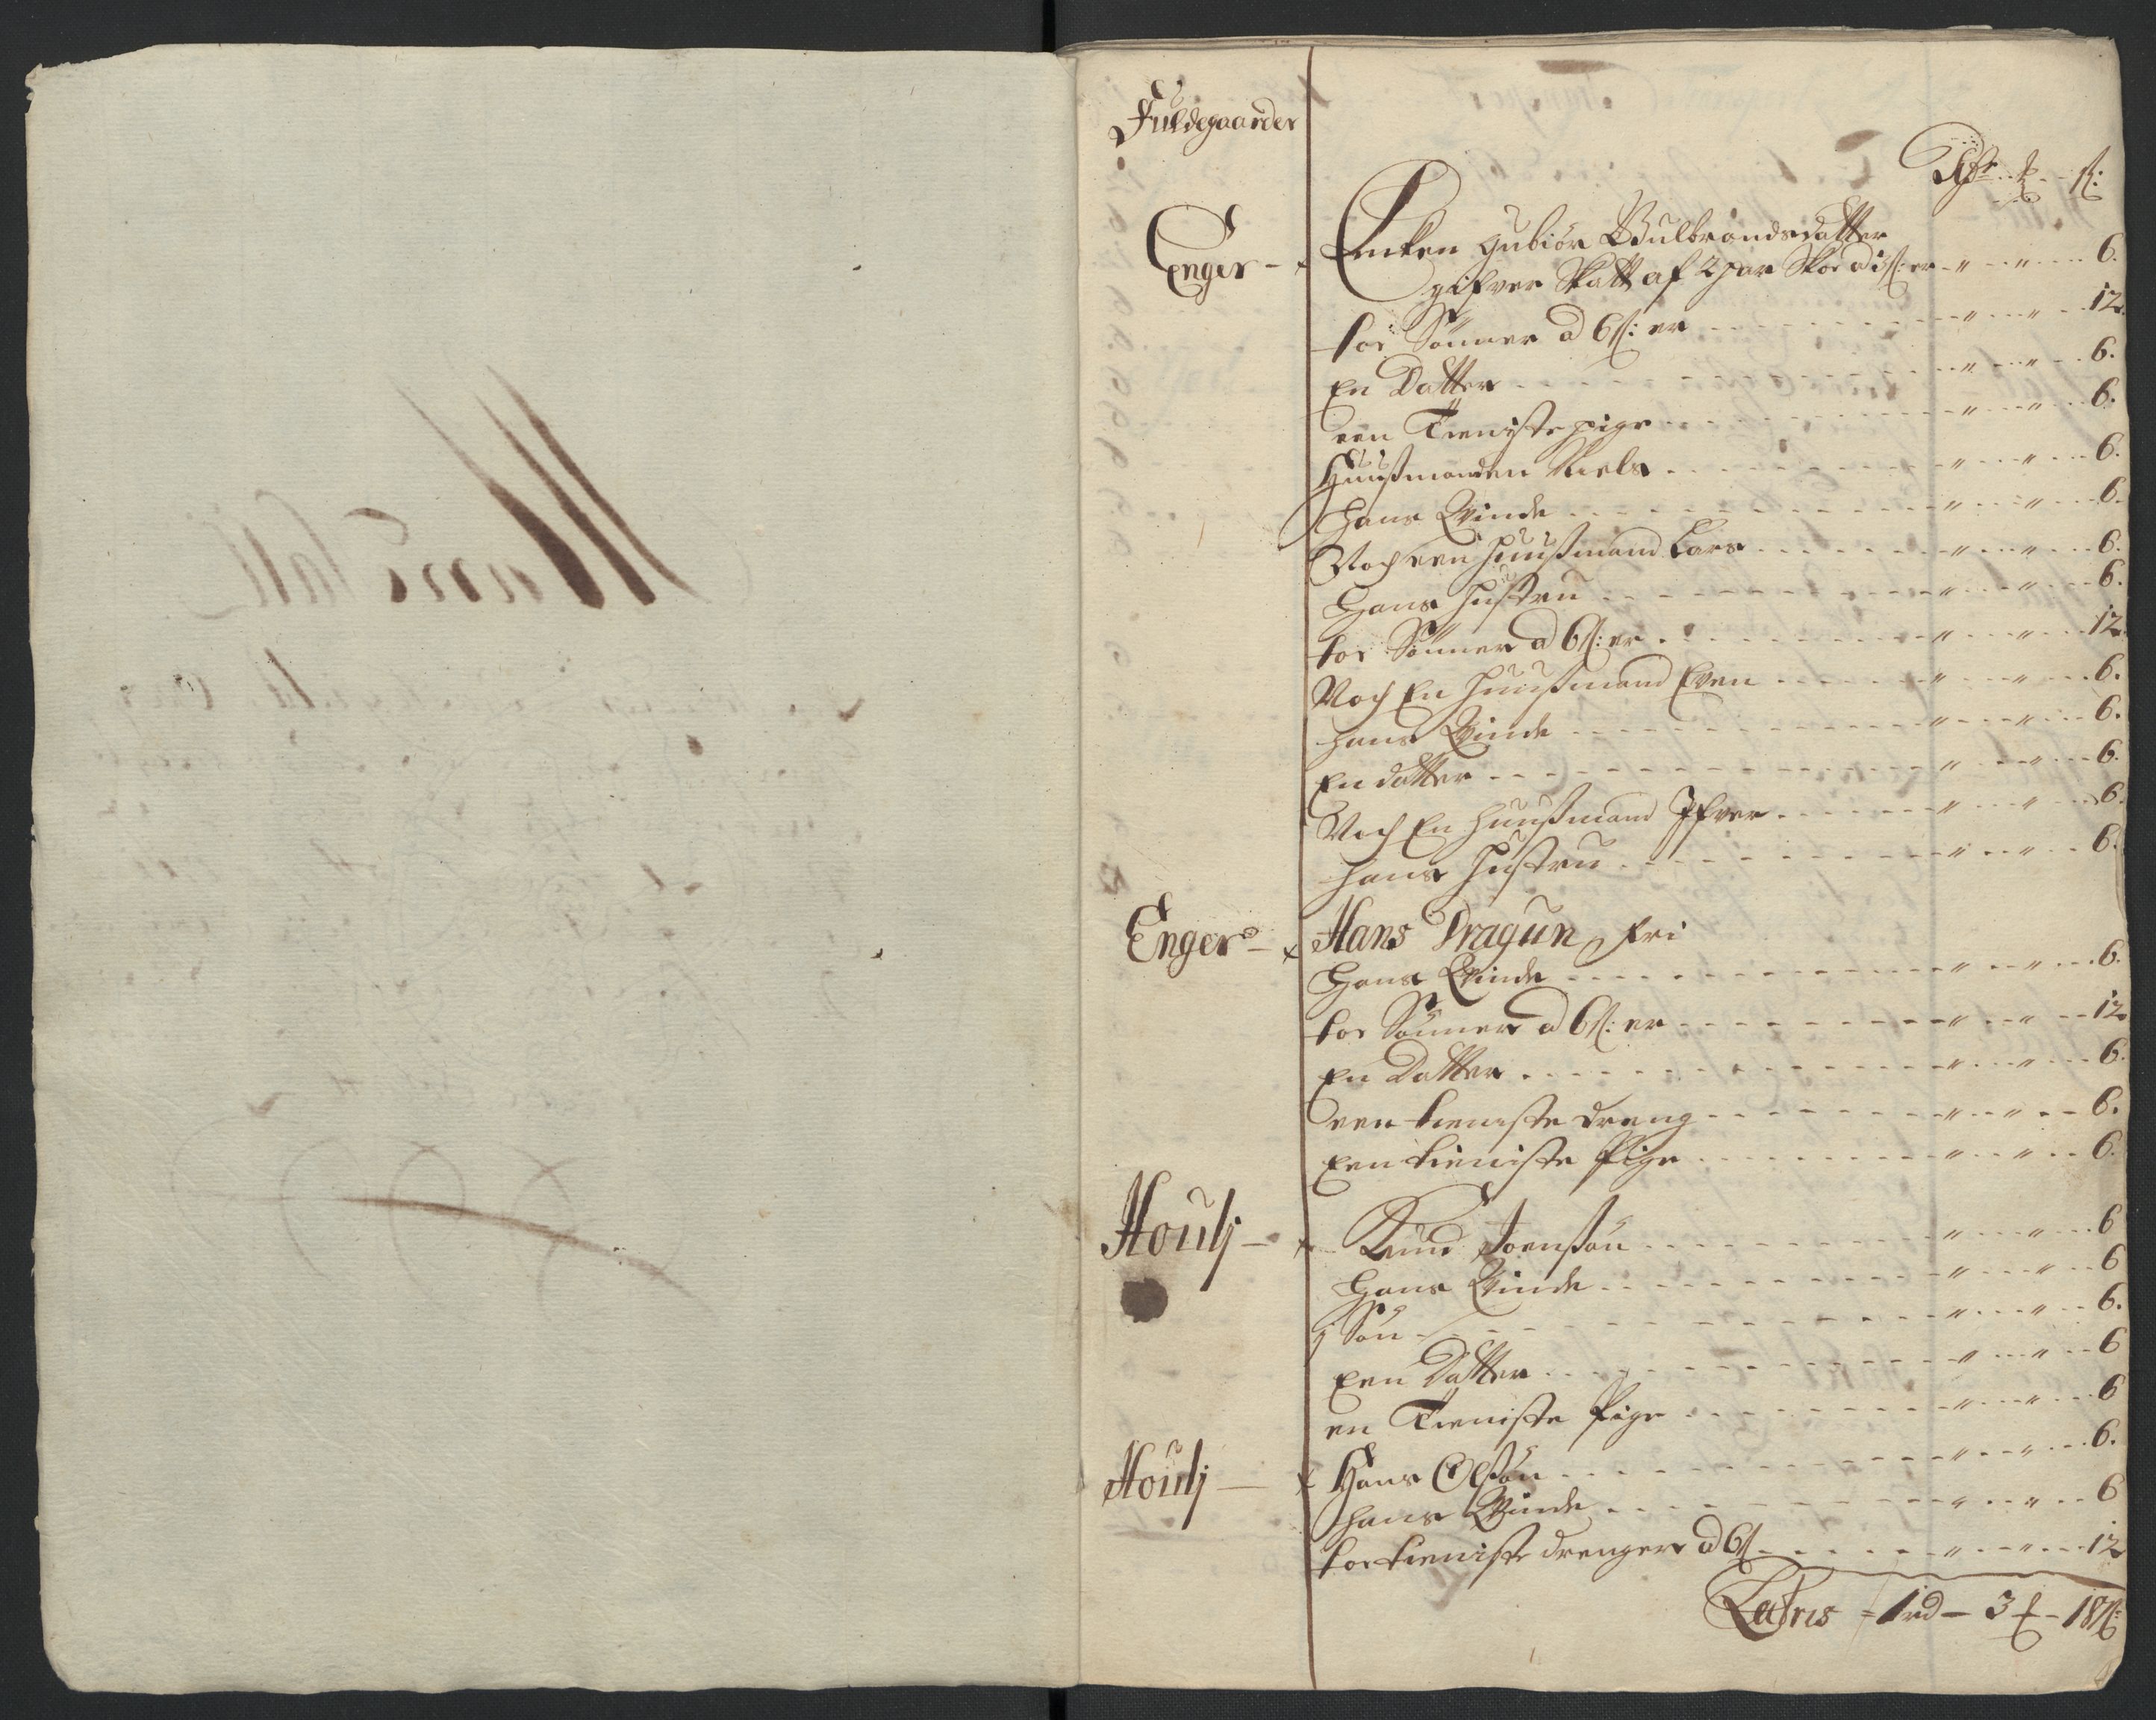 Fuldegaarder
Rdr ß:
Enger - Encken Gubiör Gulbrandsdatter
gifver Skatt af 2 par Skoe a 3 ß: er - " - " - 6.
toe Sönner a 6 ß: er - " - " - 12.
En Datter - " - " - 6.
een Tieniste pige - " - " - 6.
Huußmanden Niels - " - " - 6.
Hans Qvinde - " - " - 6.
Noch een Huußmand Lars - " - " - 6.
Hans Hustru - " - " - 6.
toe Sönner a 6 ß: er - " - " - 12.
Noch En Huußmand Even - " - " - 6.
Hans Qvinde - " - " - 6.
En datter - " - " - 6.
Noch En Huußmand Ifver - " - " - 6.
Hans Hustru - " - " - 6.
Enger - Hans Dragun fri
Hans Qvinde - " - " - 6.
toe Sönner a 6 ß: er - " - " - 12.
En Datter - " - " - 6.
een tieniste dreng - " - " - 6.
Een tieniste Pige - " - " - 6.
Houlj - Knud Joensön - " - " - 6
Hans Qvinde - " - " - 6
j Sön - " - " - 6.
Een Datter - " - " - 6
en Tieniste Pige - " - " - 6
Houlj - Hans Olsön - " - " - 6.
Hans Qvinde - " - " - 6
toe tieniste drenger a 6 ß - " - " - 12
Latris - 1 rd - 3 - 18 ß: